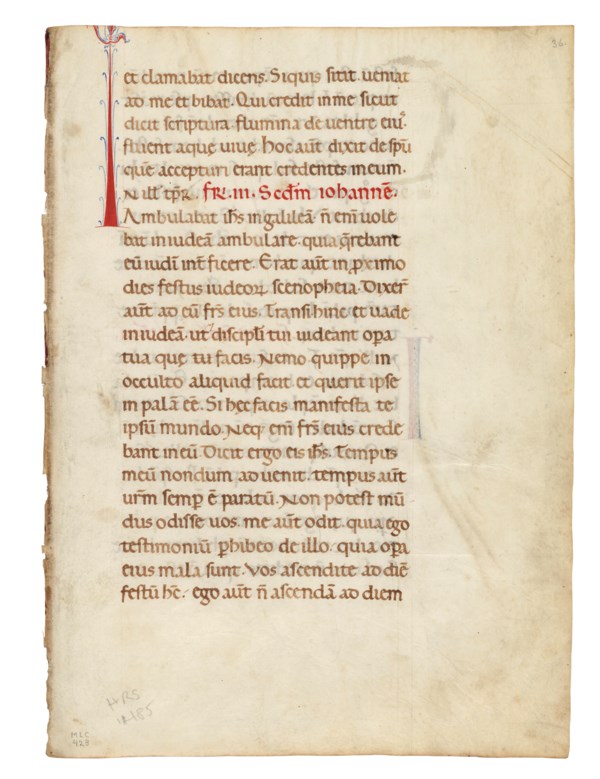 96.
et clamabat dicens. Siquis sitit. veniat
ad me et bibat. Qui credit in me sicut
dicit scriptura. flumina de ventre eiuˀ.
fluent aquę viuę. Hoc aūt dixit de sp̄u
quē accepturi erant credentes in eum.
In illˀ tp̄r. fr̄. iii. Scdm̄ iohannē.
Ambulabat ih̄s in galileā. n̄ em̄ uole
bat in iudeā ambulare. quia q̄rebant
eū iudi int̄ficere. Erat aūt in proximo
dies festus iudeoꝝ scenopheia. Dixer̄
aūt ad eū fr̄s eius. Transi hinc et uade
in iudeā. ut discipl̄i tui uideant op̄a
tua quę tu facis. Nemo quippe in
occulto aliquid facit et querit ipse
in palā eē. Si hec facis manifesta te
ipsū mundo. Neqˀ em̄ fr̄s eius crede
bant in eū. Dicit ergo eis ih̄s. Tempus
meū nondum aduenit. tempus aūt
ur̄m semp̄ ē paratū. Non potest mū
dus odisse uos. me aūt odit. quia ego
testimoniū p̄hibeo de illo. quia op̄a
eius mala sunt. Vos ascendite ad diē
festū hc̄. ego aūt n̄ ascendā ad diem
MLC
428